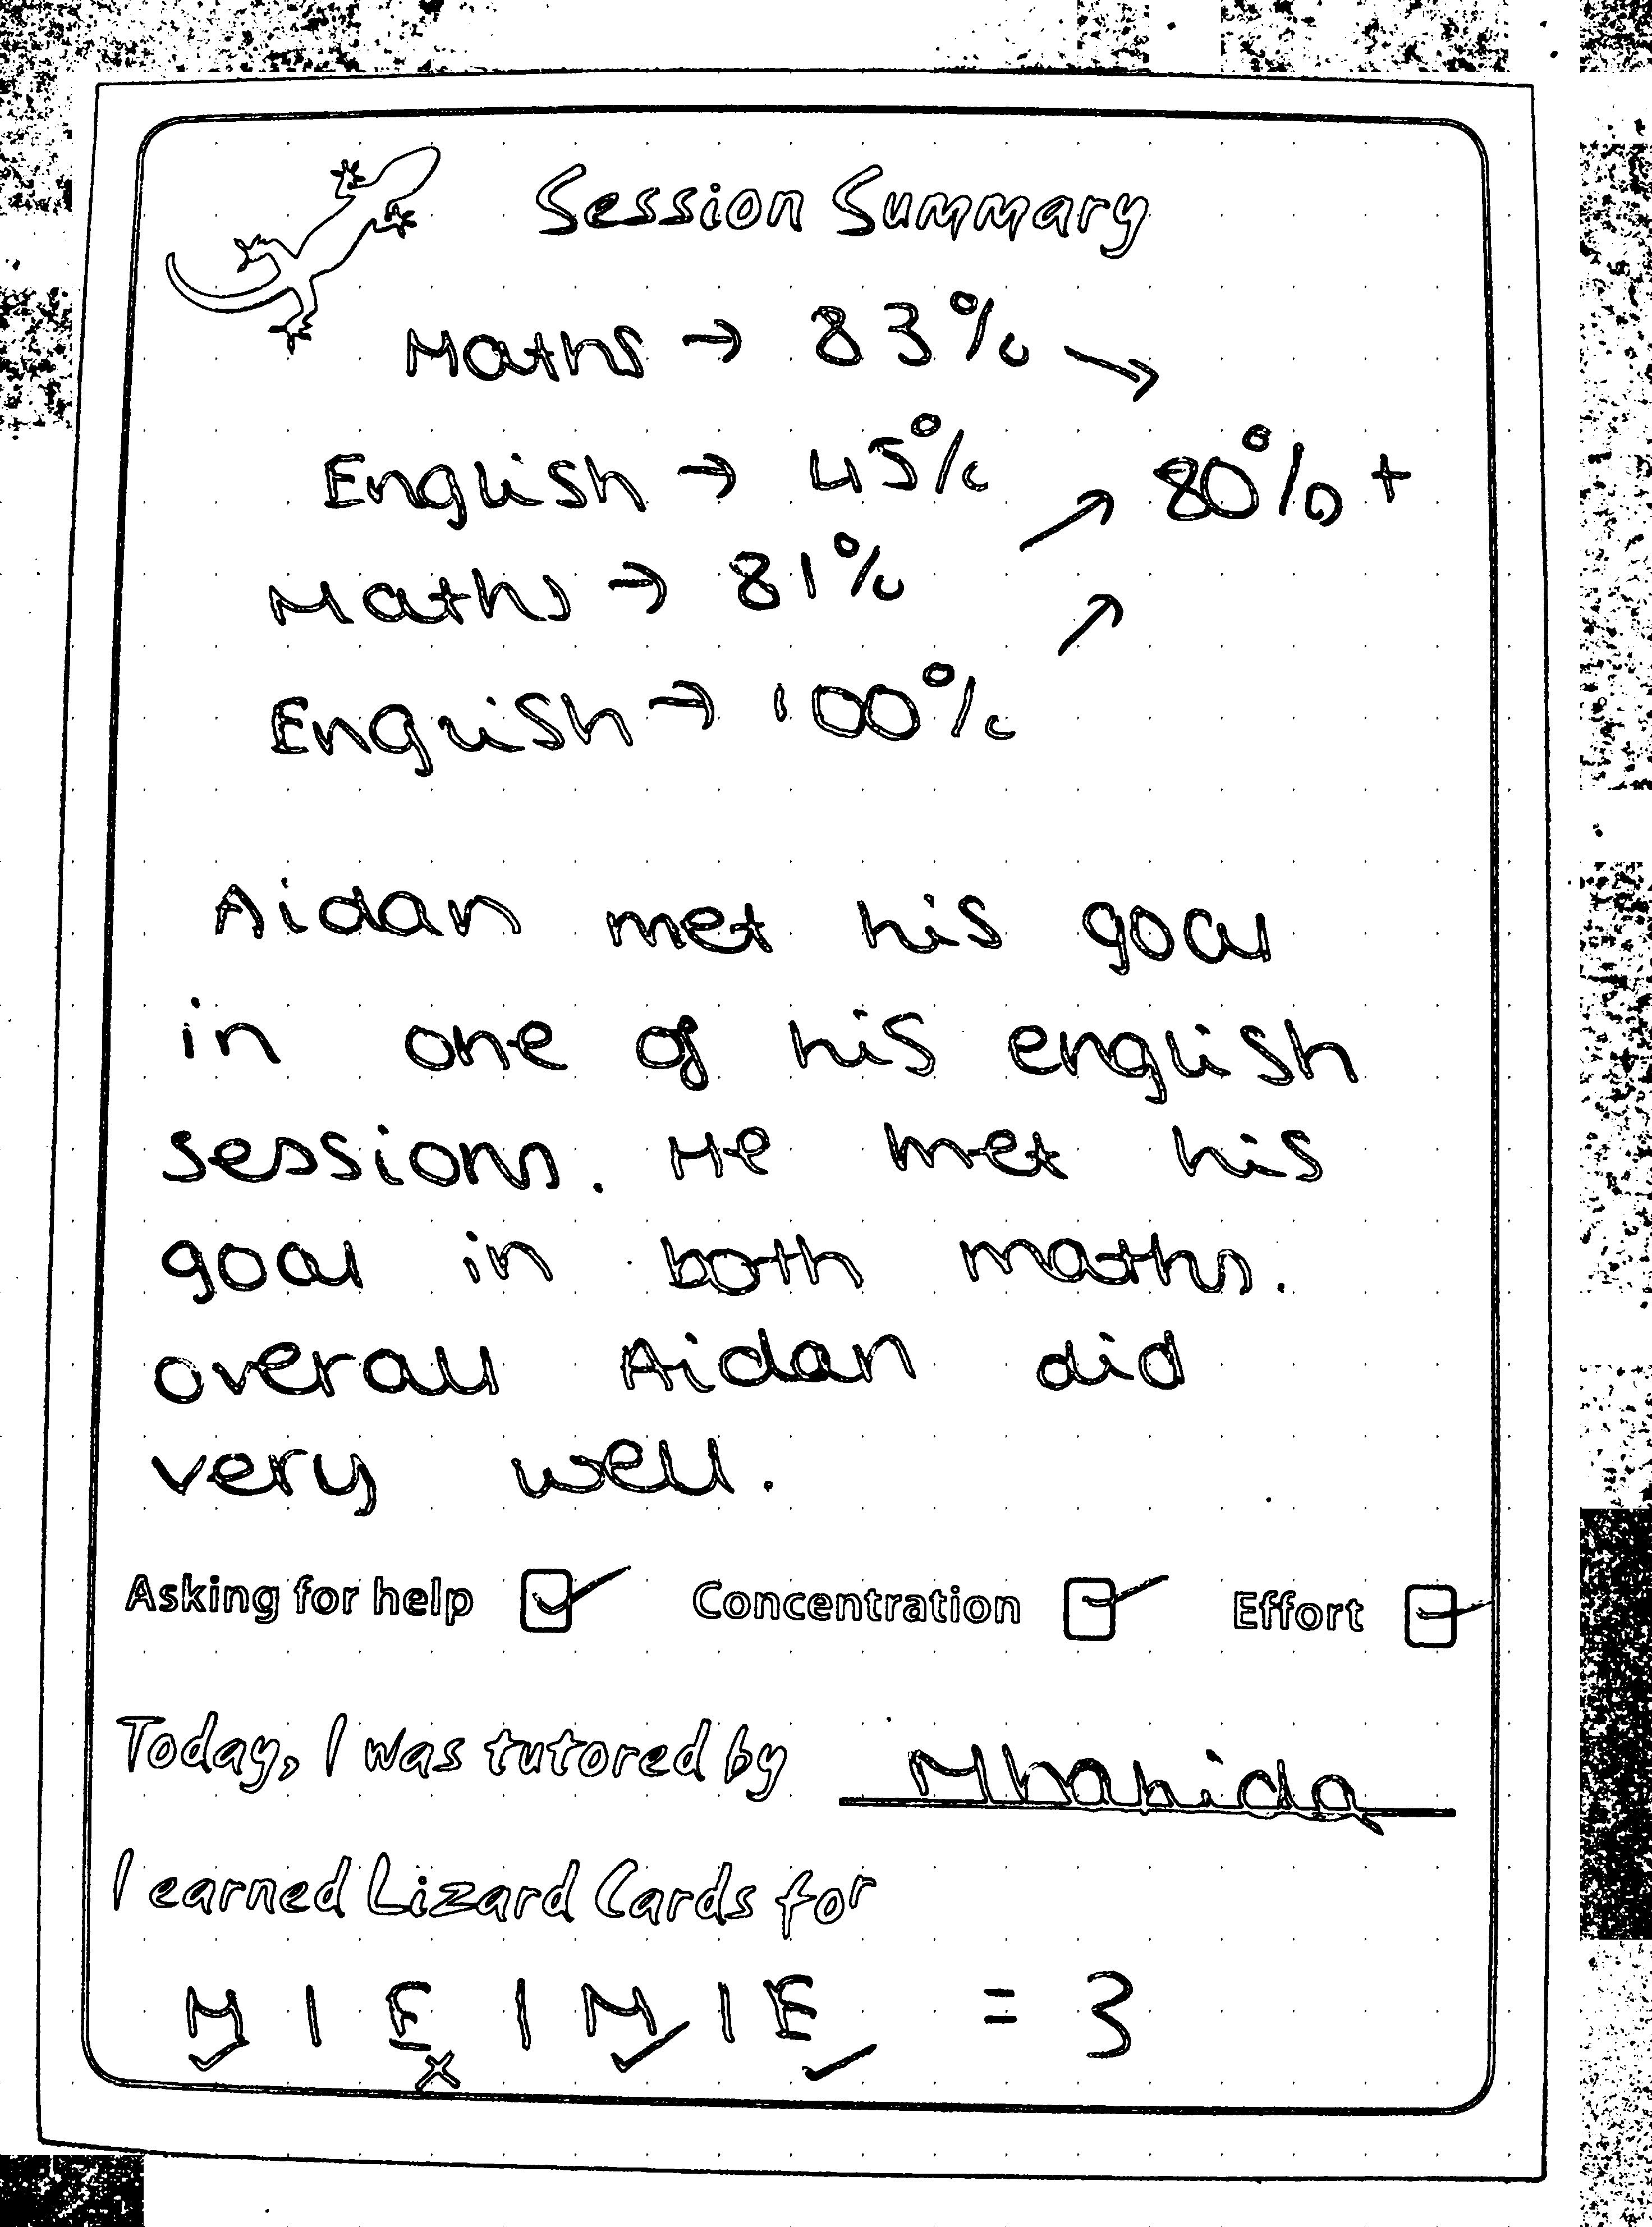 Session Summary
Maths → 83% →
English → 45% ↗ 80% +
Maths → 81% ↗
English → 100%
Aidan met his goal
in one of his english
sessions. He met his
goal in both maths.
overall Aidan did
very well.
Asking for help ☑ Concentration ☑ Effort ☑
Today, I was tutored by
I earned Lizard Cards for
M | E | M | E = 3
✓ x ✓ ✓